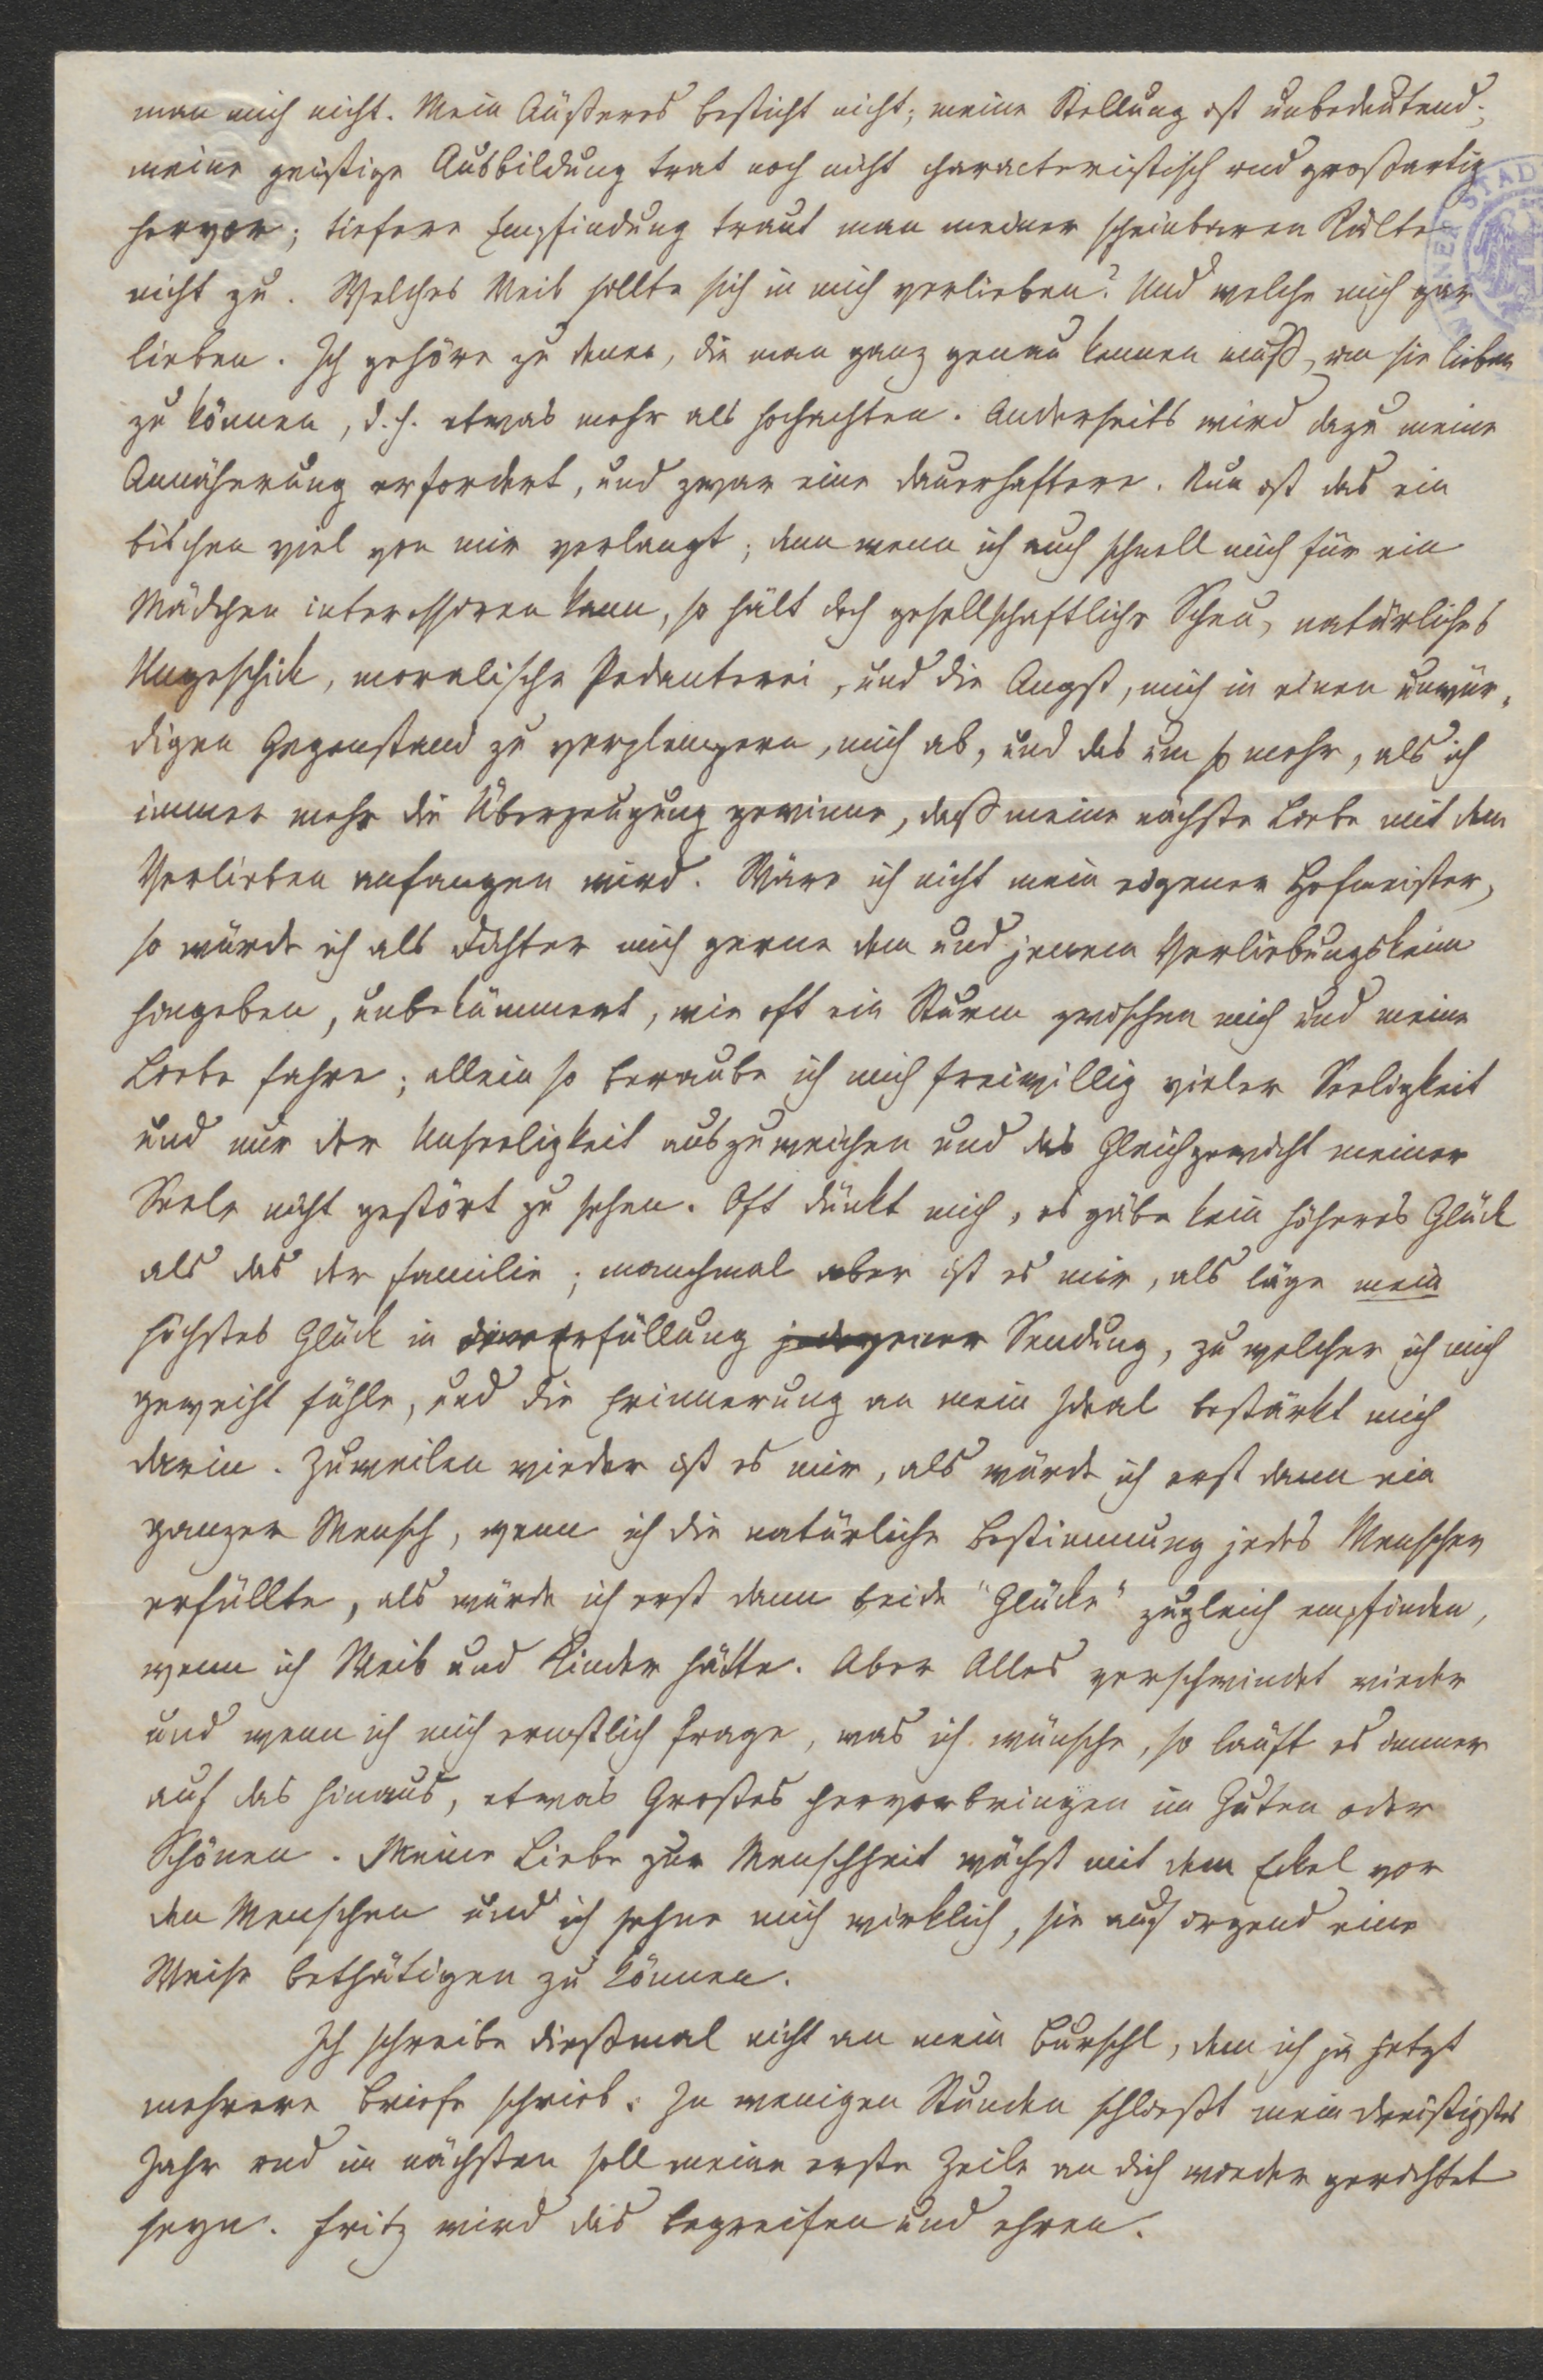 man mich nicht. Mein Äußeres besticht nicht; meine Stellung ist unbedeutend;
meine geistige Ausbildung trat noch nicht characteristisch und großartig
hervor; tiefere Empfindung traut man meiner scheinbaren Kälte
nicht zu. Welches Weib sollte sich in mich verlieben? Und welche mich gar
lieben. Ich gehöre zu denen, die man ganz genau kennen muß, um sie lieben
zu können, d. h. etwas mehr als hochachten. Anderseits wird dazu meine
Annäherung erfordert, und zwar eine dauerhaftere. Nun ist das ein
bischen viel von mir verlangt; denn wenn ich auch schnell mich für ein
Mädchen interessiren kann, so hält doch gesellschaftliche Scheu, natürliches
Ungeschick, moralische Pedanterei, und die Angst, mich in einen unwür-
digen Gegenstand zu verplempern, mich ab, und das um so mehr, als ich
immer mehr die Überzeugung gewinne, daß meine nächste Liebe mit dem
Verlieben anfangen wird. Wäre ich nicht mein eigener Hofmeister,
so würde ich als Dichter mich gerne dem und jenem Verliebungskeim
hingeben, unbekümmert, wie oft ein Sturm zwischen mich und meine
Liebe fahre; allein so beraube ich mich freiwillig vieler Seeligkeit
und nur der Unseeligkeit auszuweichen und das Gleichgewicht meiner
Seele nicht gestört zu sehen. Oft dünkt mich, es gäbe kein höheres Glück
als das der Familie; manchmal aber ist es mir, als läge mein
höchstes Glück in der Erfüllung jener Sendung, zu welcher ich mich
geweiht fühle, und die Erinnerung an mein Ideal bestärkt mich
darin. Zuweilen wieder ist es mir, als würde ich erst dann ein
ganzer Mensch, wenn ich die natürliche Bestimmung jedes Menschen
erfüllte, als würde ich erst dann beide "Glücke" zugleich empfinden,
wenn ich Weib und Kinder hätte. Aber Alles verschwindet wieder
und wenn ich mich ernstlich frage, was ich wünsche, so lauft es immer
auf das hinaus, etwas Großes hervorbringen im Guten oder
Schönen. Meine Liebe zur Menschheit wächst mit dem Eckel vor
den Menschen und ich sehne mich wirklich, sie auf irgend eine
Weise bethätigen zu können.
Ich schreibe dießmal nicht an mein Burschl, dem ich ja jetzt
mehrere Briefe schrieb. In wenigen Stunden schließt mein dreißigstes
Jahr und im nächsten soll meine erste Zeile an dich wieder gerichtet
seyn. Fritz wird das begreifen und ehren.